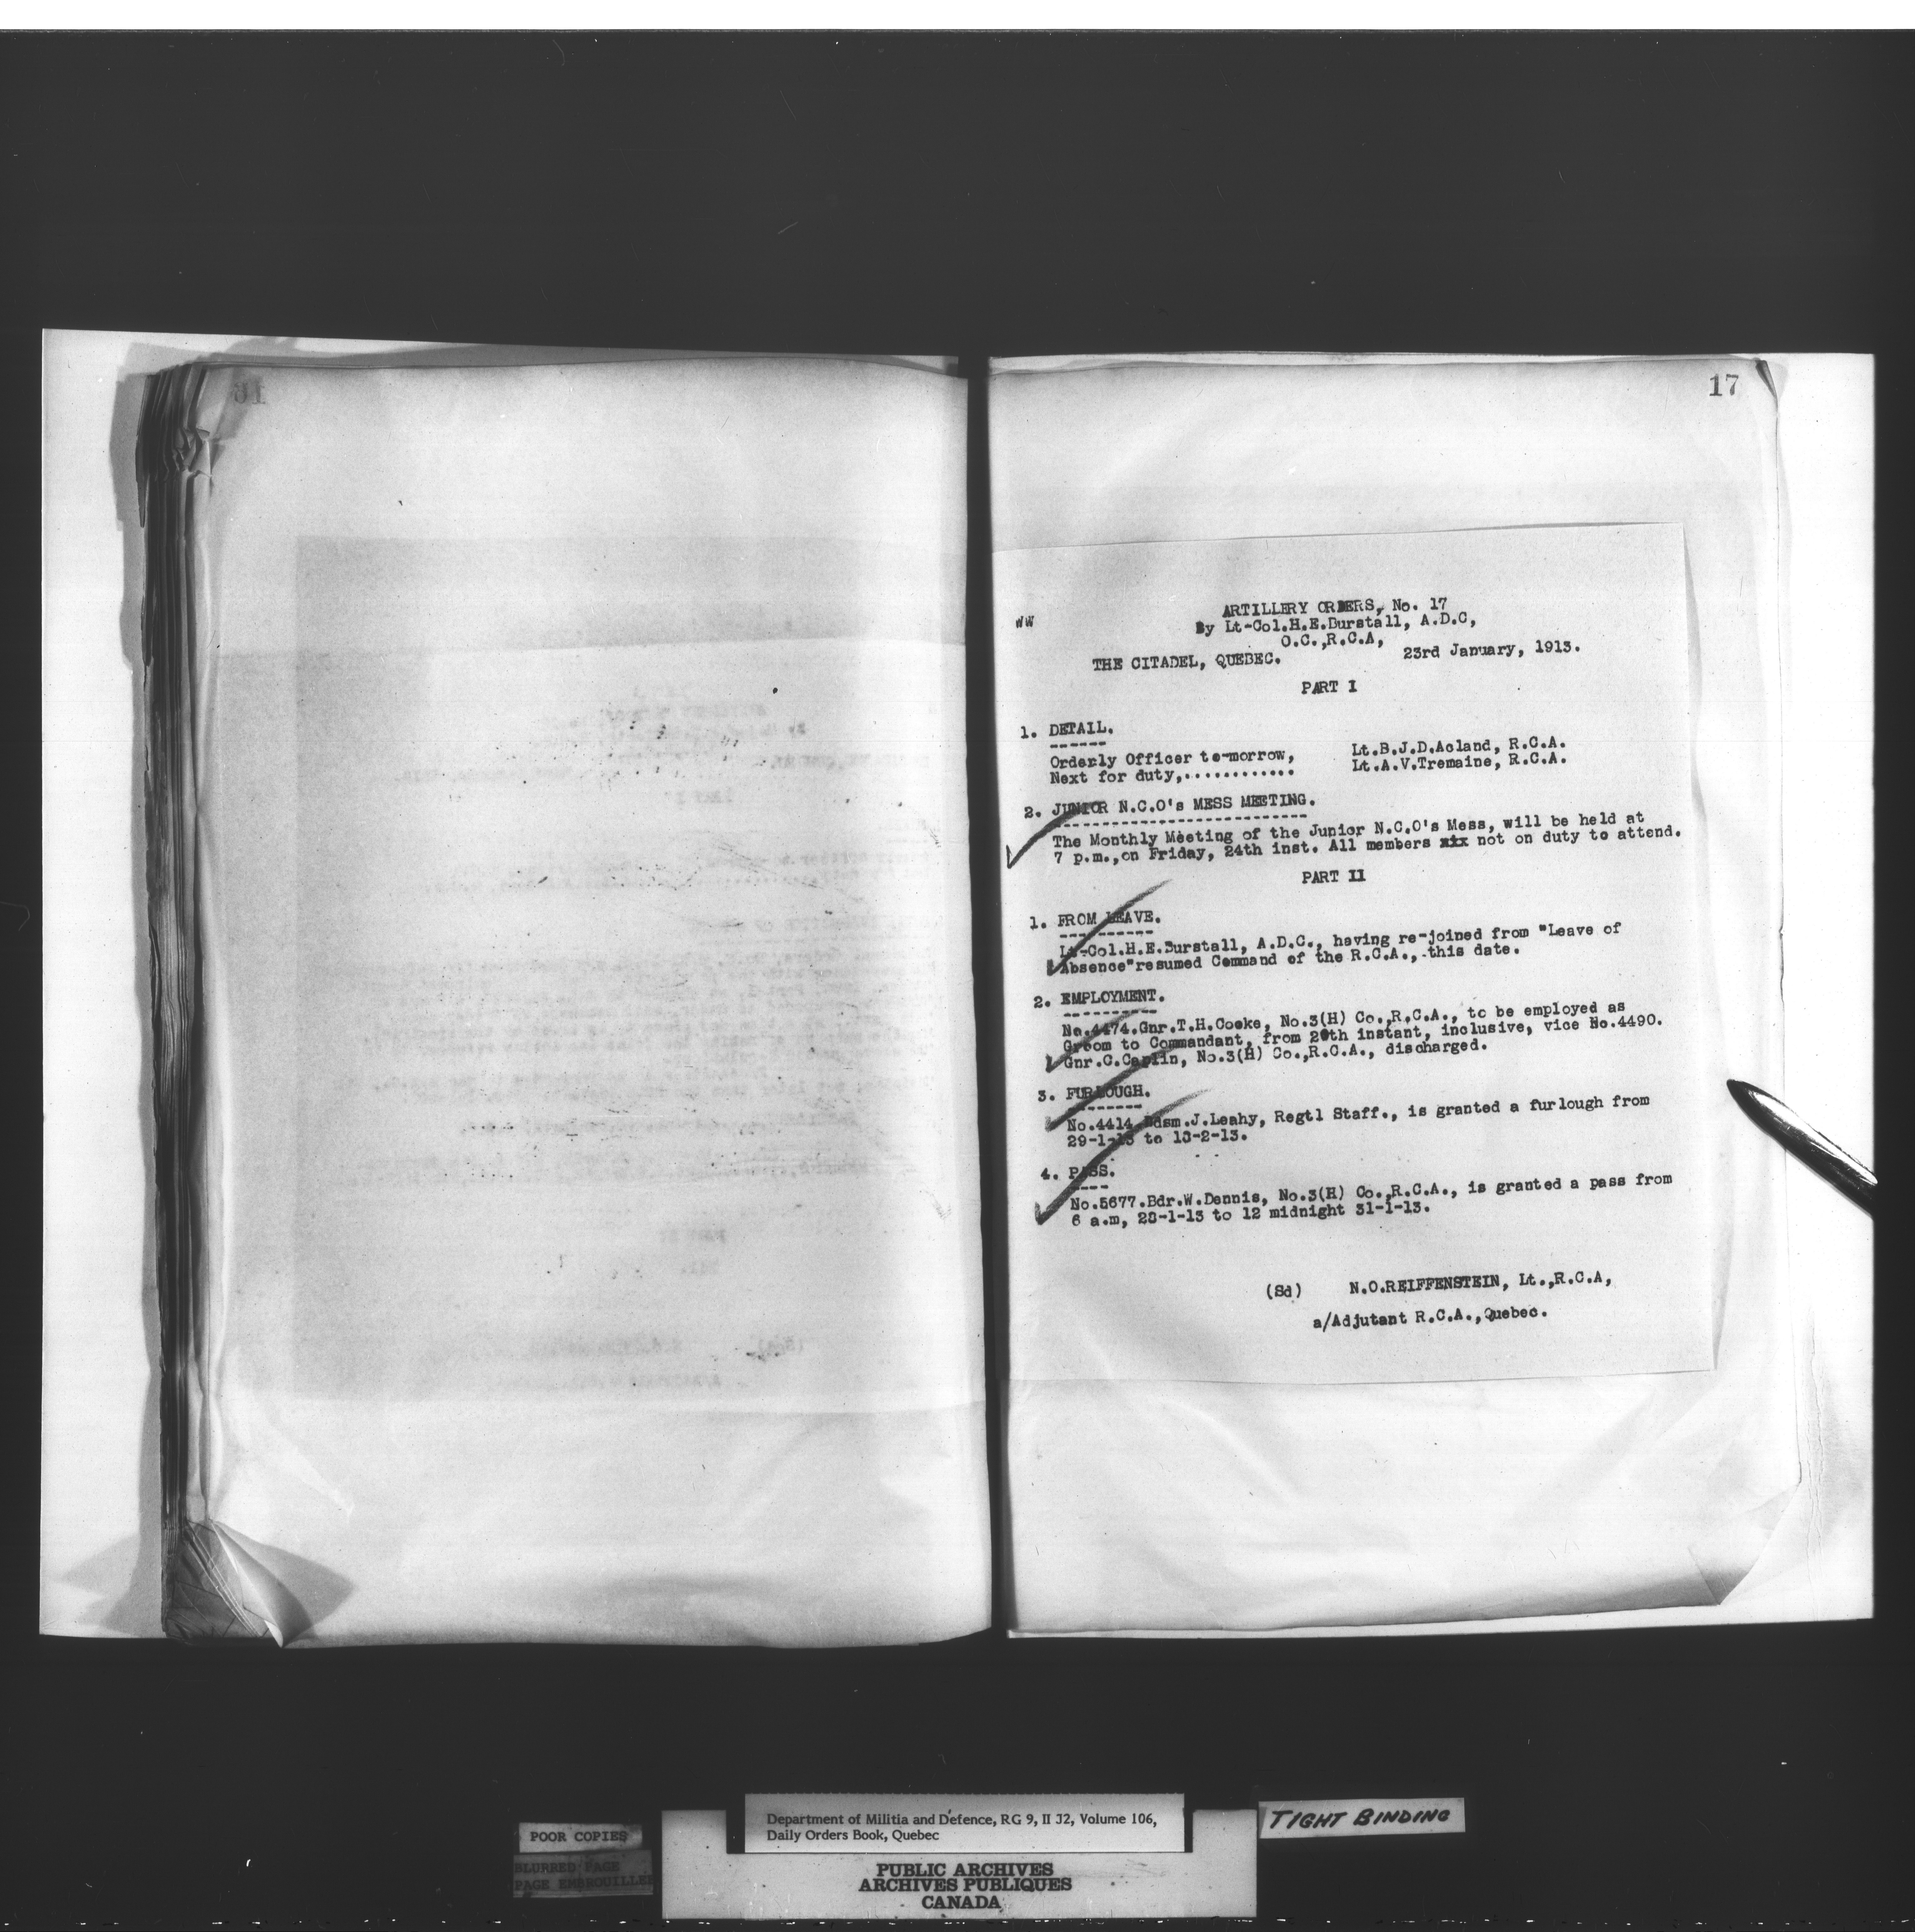 17
WW
ARTILLERY ORDERS, No. 17
By Lt-Col.H.E.Burstall, A.D.C,
O.C.,R.C.A,
THE CITADEL, QUEBEC. 23rd January, 1913.
PART I
1. DETAIL.
Orderly Officer to-morrow, Lt.B.J.D.Acland, R.C.A.
Next for duty,............ Lt.A.V.Tremaine, R.C.A.
2. JUNIOR N.C.O's MESS MEETING.
The Monthly Meeting of the Junior N.C.O's Mess, will be held at
7 p.m.,on Friday, 24th inst. All members xix not on duty to attend.
PART II
1. FROM LEAVE.
Lt-Col.H.E.Burstall, A.D.C., having re-joined from "Leave of
Absence"resumed Command of the R.C.A., this date.
2. EMPLOYMENT.
No.4474.Gnr.T.H.Cooke, No.3(H) Co.,R.C.A., to be employed as
Groom to Commandant, from 20th instant, inclusive, vice No.4490.
Gnr.C.Caplin, No.3(H) Co.,R.C.A., discharged.
3. FURLOUGH.
No.4414.Bdsm.J.Leahy, Regtl Staff., is granted a furlough from
29-1-13 to 10-2-13.
4. PASS.
No.5677.Bdr.W.Dennis, No.3(H) Co.,R.C.A., is granted a pass from
6 a.m, 28-1-13 to 12 midnight 31-1-13.
(Sd) N.O.REIFFENSTEIN, Lt.,R.C.A,
a/Adjutant R.C.A.,Quebec.
Department of Militia and Defence, RG 9, II J2, Volume 106,
Daily Orders Book, Quebec
TIGHT BINDING
POOR COPIES
BLURRED PAGE
PAGE EMBROUILLEE
PUBLIC ARCHIVES
ARCHIVES PUBLIQUES
CANADA